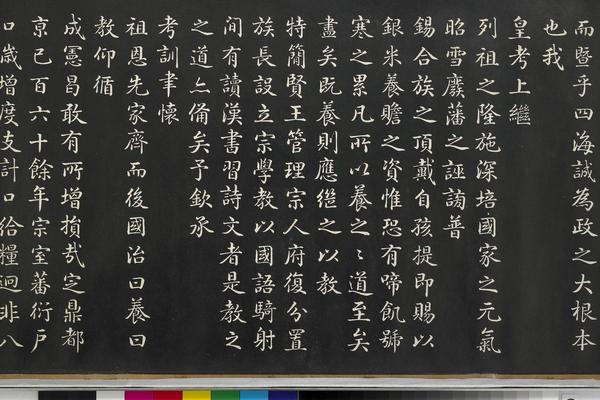 而暨乎四海誠為政之大根本
也我
皇考上繼
列祖之隆施深培國家之元氣
昭雪廢藩之誣謗普
錫合族之頂戴自孩提即賜以
銀米養贍之資惟恐有啼飢號
寒之累凡所以養之〻道至矣
盡矣既養則應繼之以教
特簡賢王管理宗人府復分置
族長設立宗學教以國語騎射
间有讀漢書習詩文者是教之
之道亦俻矣予欽承
考訓聿懷
祖恩先家齊而後國治曰養曰
教仰循
成憲曷敢有所增損哉定鼎都
京已百六十餘年宗室蕃衍戶
口歲增度支計口給糧迥非八